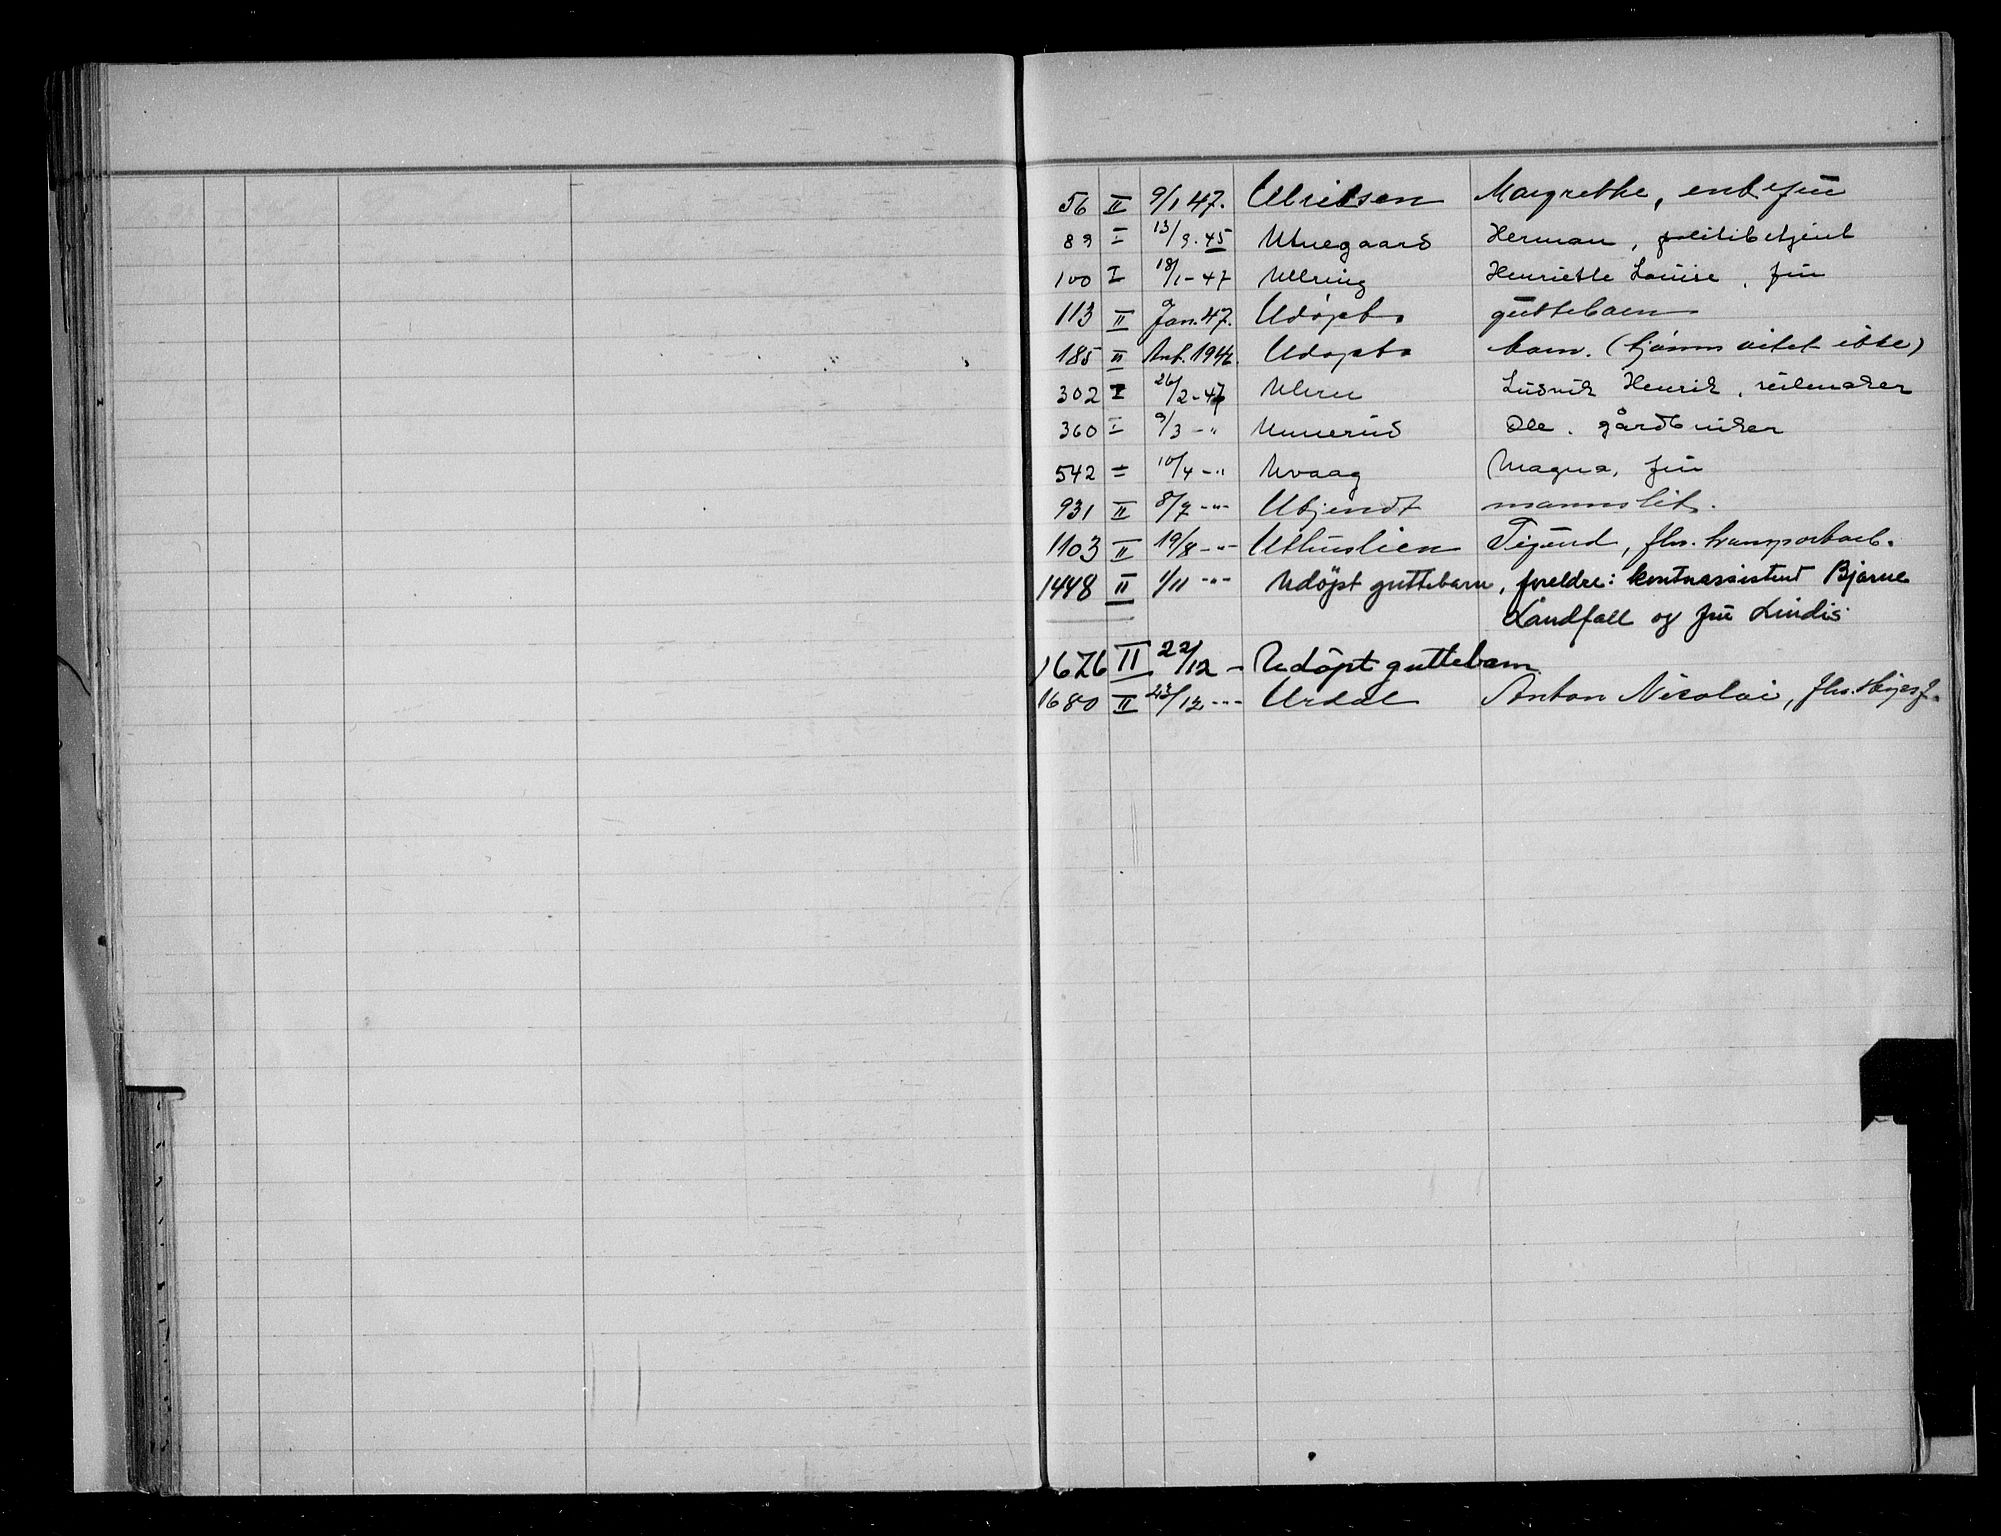 56 II 9/1 47. Ulriksen Margrethe, enkefru
89 I 13/9. 45 Utnegaard Herman, politibetjent
100 I 18/1 - 47 Ullring Henriette Louise, fru
113 II Jan. 47. Udøpt guttebarn
185 II 1946. Udøpt barn. (kjønn vites ikke)
302 I 26/2 - 47 Ludvik Henrik, seilmaker
360 I 9/3 - " Unnerud Ole, gårdbruker
542 I 10/4 - " Uvaag Magna, fru
931 II 8/7 - " - Ukjendt mannslik.
1103 II 19/8 - " - Uthuslien Sigurd, fhv. transportarb.
1448 II 1/11 - " - Udøpt guttebarn, foreldre: kontorassistent Bjarne
Landfall og fru Lindis
1676 II 22/12 - Udöpt guttebarn
1680 II 23/12 - " - Urdal Anton Nicolai, fhv.